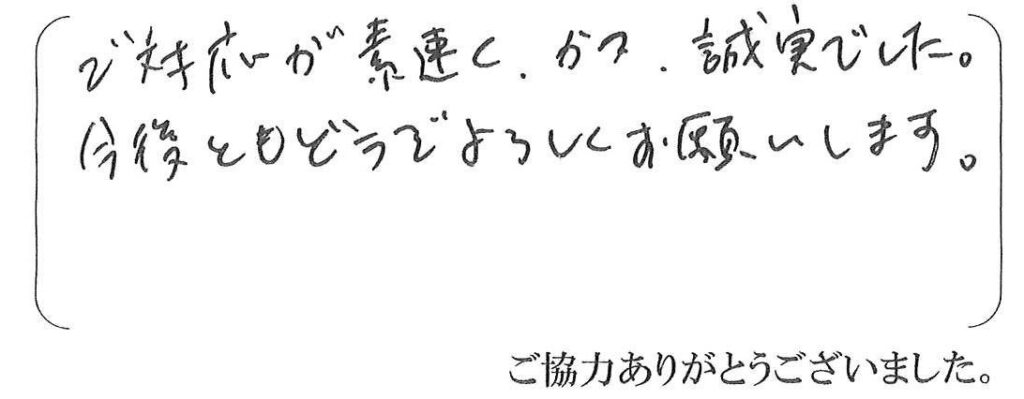 ご対応が素速く、かつ、誠実でした。
今後ともどうぞよろしくお願いします。
ご協力ありがとうございました。